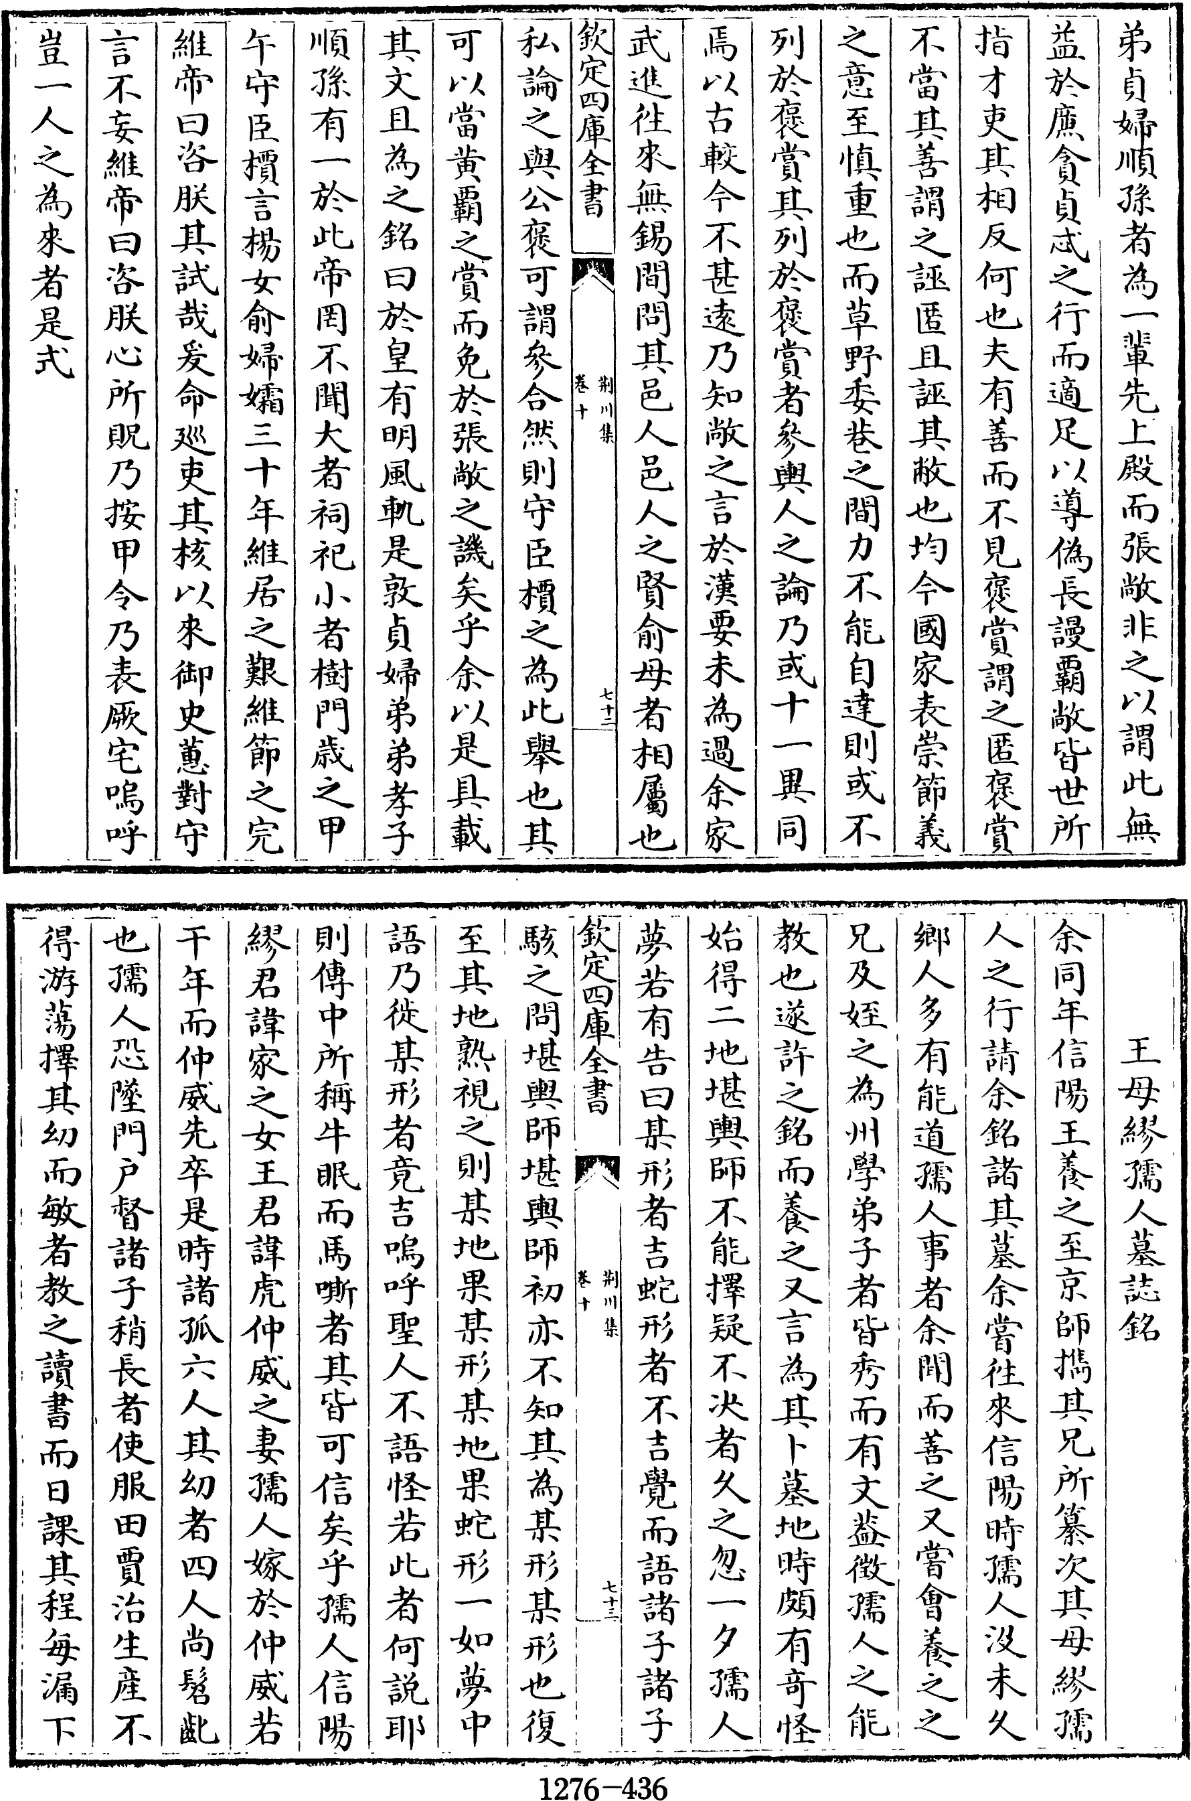 弟貞婦順孫者為一輩先上殿而張敞非之以謂此無
益於廉貪貞忒之行而適足以導偽長謾覇敞皆世所
指才吏其相反何也夫有善而不見褒賞謂之匿褒賞
不當其善謂之誣匿且誣其敝也均今國家表崇節義
之意至慎重也而草野委巷之間力不能自達則或不
列於褒賞其列於褒賞者參輿人之論乃或十一異同
焉以古較今不甚遠乃知敞之言於漢要未為過余家
武進往來無錫間問其邑人邑人之賢俞母者相屬也
欽定四庫全書
荆川集
卷十
七十二
私論之與公褒可謂參合然則守臣櫝之為此舉也其
可以當黃覇之賞而免於張敞之譏矣乎余以是具載
其文且為之銘曰於皇有明風軌是敦貞婦弟弟孝子
順孫有一於此帝罔不聞大者祠祀小者樹門歲之甲
午守臣櫝言楊女俞婦孀三十年維居之艱維節之完
維帝曰咨朕其試哉爰命廵吏其核以來御史蕙對守
言不妄維帝曰咨朕心所貺乃按甲令乃表厥宅嗚呼
豈一人之為來者是式
王母繆孺人墓誌銘
余同年信陽王養之至京師携其兄所纂次其母繆孺
人之行請余銘諸其墓余嘗往來信陽時孺人沒未久
鄉人多有能道孺人事者余聞而善之又嘗會養之之
兄及姪之為州學弟子者皆秀而有文葢徵孺人之能
教也遂許之銘而養之又言為其卜墓地時頗有奇怪
始得二地堪輿師不能擇疑不决者久之忽一夕孺人
夢若有告曰某形者吉蛇形者不吉覺而語諸子諸子
欽定四庫全書
荆川集
卷十
七十三
駭之問堪輿師堪輿師初亦不知其為某形某形也復
至其地熟視之則某地果某形某地果蛇形一如夢中
語乃從某形者竟吉嗚呼聖人不語怪若此者何説耶
則傳中所稱牛眠而馬嘶者其皆可信矣乎孺人信陽
繆君諱家之女王君諱虎仲威之妻孺人嫁於仲威若
干年而仲威先卒是時諸孤六人其幼者四人尚髫齔
也孺人恐墜門户督諸子稍長者使服田賈治生產不
得游蕩擇其幼而敏者教之讀書而日課其程每漏下
1276-436